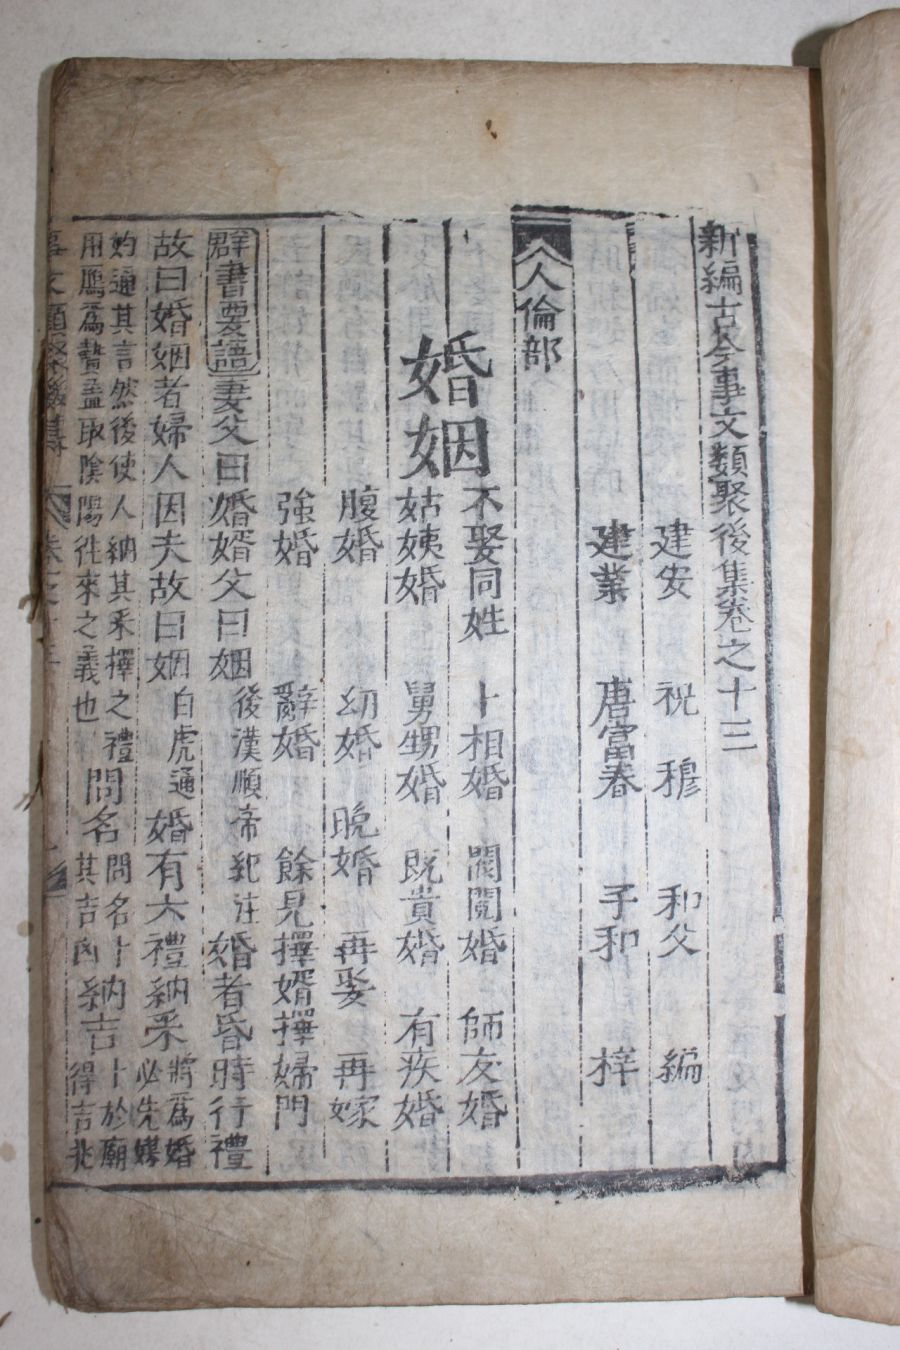 新編古今事文類聚後集卷之十三
建安 祝 穆 和父 編
建業 唐富春 子和 梓
人倫部
婚姻 不娶同姓 卜相婚 閥閱婚 師友婚
姑姨婚 舅甥婚 既貴婚 有疾婚
腹婚 幼婚 晚婚 再娶 再嫁
強婚 辭婚 餘見擇婿擇婦門
群書要語 妻父曰婚婿父曰姻 後漢順帝 注 婚者昏時行禮
故曰婚姻者婦人因夫故曰姻 白虎通 婚有六禮納采 將為婚必先媒
妁通其言然後使人納其采擇之禮用鴈為贄盖取陰陽徃來之義也 問名 問名卜其吉凶 納吉 納卜於廟得吉兆
事文類聚後集 卷之十三